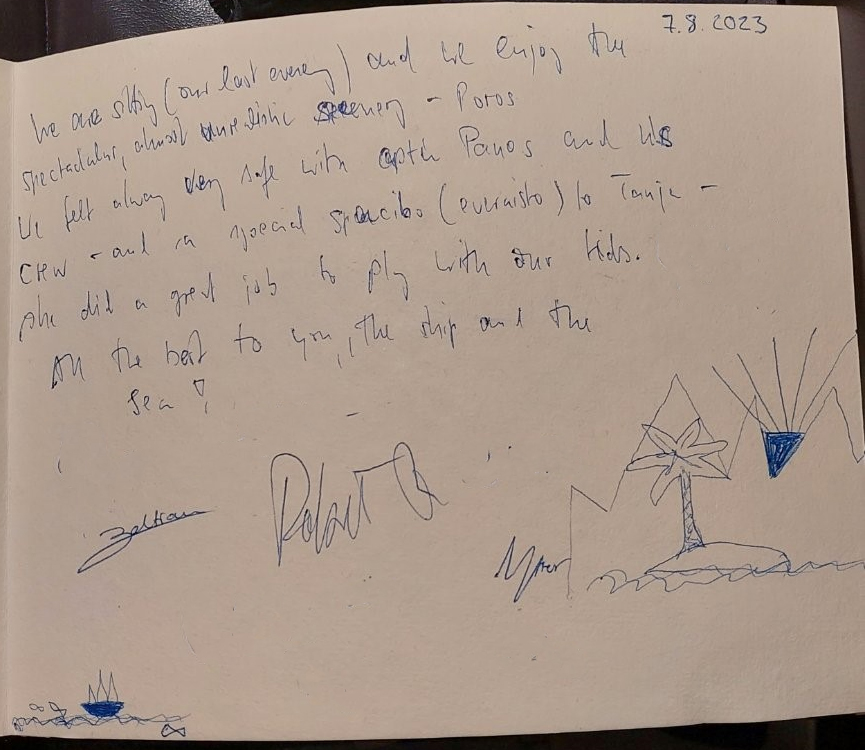 7.8.2023
We are sitting (our last evening) and we enjoy the
spectacular, almost unrealistic scenery - Poros
We felt always very safe with captn Panos and his
crew - and a special spacibo (evcraisto) to Tanja -
she did a great job to play with our kids.
All the best to you, the ship and the
sea!
Robert